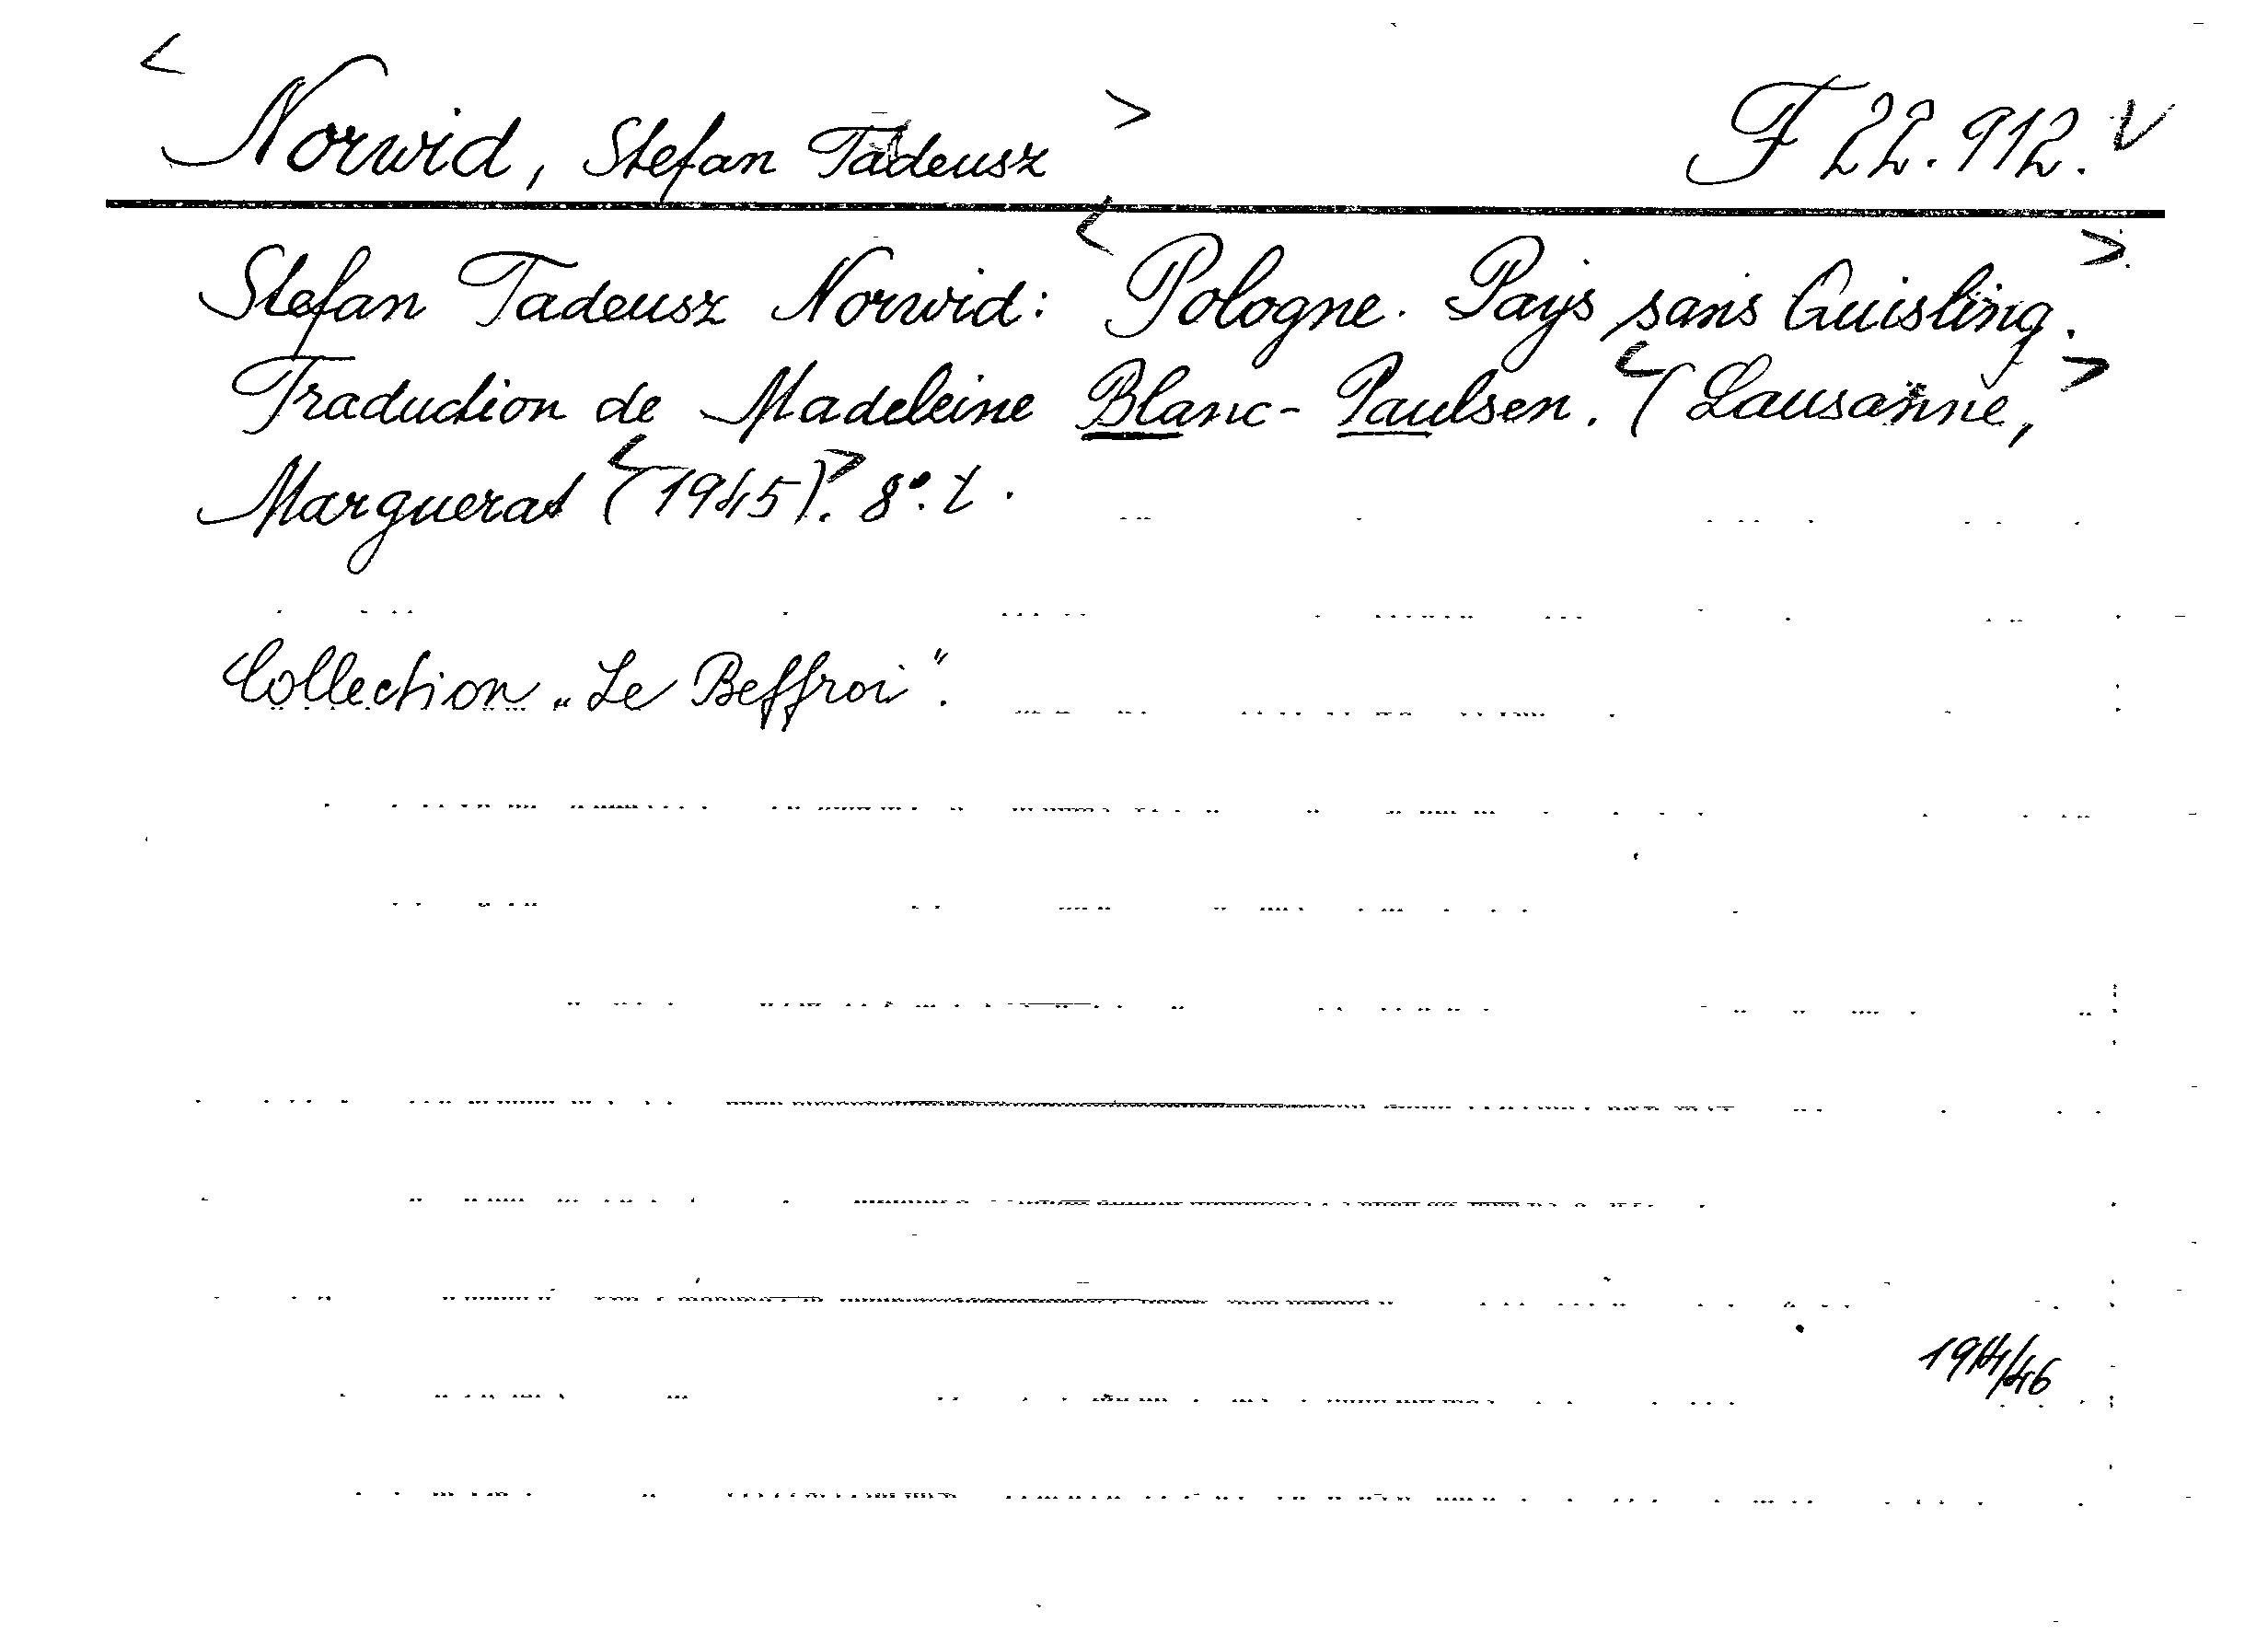 < Norwid, Stefan Tadeusz > F 22.912. V
Stefan Tadeusz Norwid: < Pologne. Pays sans Quisling. >
Traduction de Madeleine Blanc-Paulsen. < (Lausanne, >
Marguerat < (1945). > 8°.
Collection „Le Beffroi“.
/46